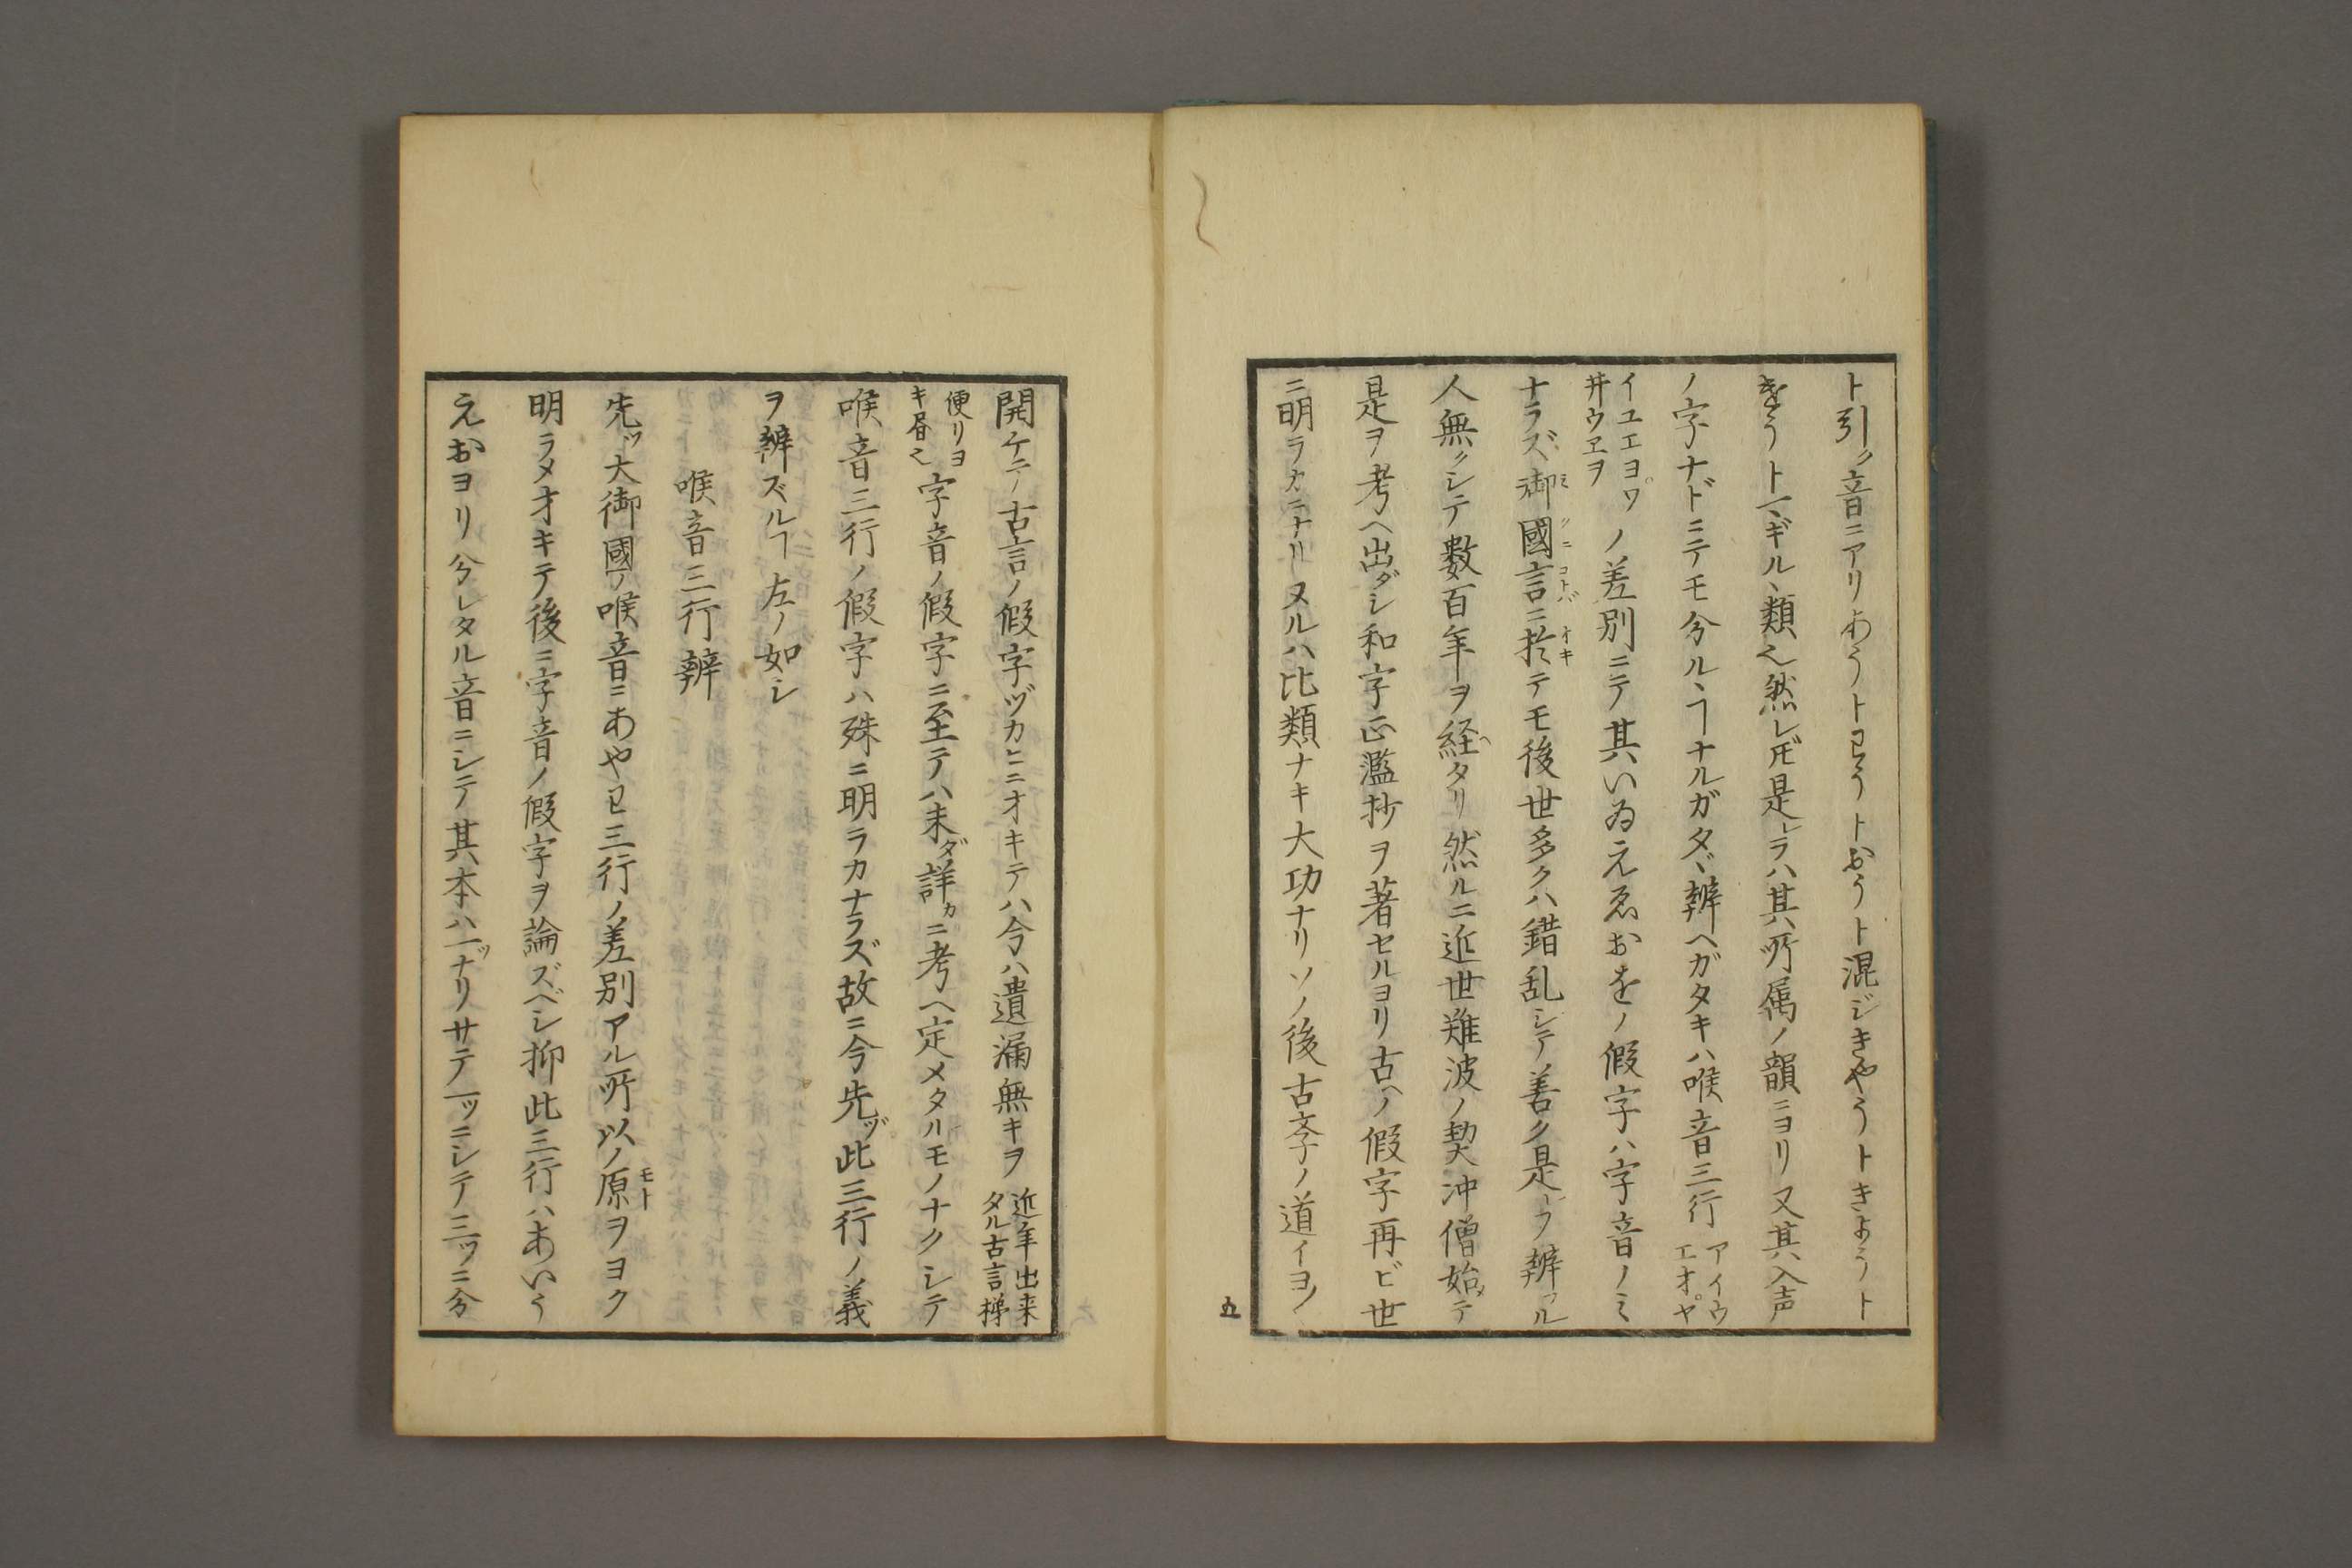 ト引ク音ニアリわうトヨうトおうト混ジきやうトきようト
きうトマギルヽ類也然レ𪜈是レラハ其所属ノ韻ニヨリ又其入声
ノ字ナドニテモ分ルヽヿナルガタヾ辨ヘガタキハ喉音三行アイウ
エオヤ
イユエヨワ
井ウヱヲノ差別ニテ其いゐえゑおをノ假字ハ字音ノミ
ナラズ御國言ニ於テモ後世多クハ錯乱シテ善ク是レヲ辨フル
人無クシテ数百年ヲ経タリ然ルニ近世難波ノ契沖僧始メテ
是ヲ考ヘ出ダシ和字正濫抄ヲ著セルヨリ古ヘノ假字再ビ世
ニ明ラカニナリヌルハ比類ナキ大功ナリソノ後古文字ノ道イヨ〳〵
五
開ケテ古言ノ假字ヅカヒニオキテハ今ハ遺漏無キヲ近年出来
タル古言梯
便リヨ
キ昬也字音ノ假字ニ至テハ未ダ詳カニ考ヘ定メタルモノナクシテ
喉音三行ノ假字ハ殊ニ明ラカナラズ故ニ今先ヅ此三行ノ義
ヲ辨ズルヿ左ノ如シ
喉音三行辨
先ッ大御國ノ喉音ニあやわ三行ノ差別アル所以ノ原ヲヨク
明ラメオキテ後ニ字音ノ假字ヲ論ズベシ抑此三行ハあいう
えおヨリ分レタル音ニシテ其本ハ一ッナリサテ一ッニシテ三ッニ分